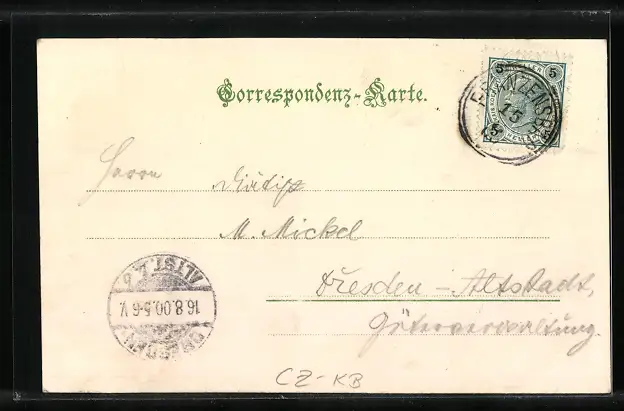 Correspondenz-Karte.
5 5
FRANZENSBAD
15
8
Herrn
Diätist
M. Mickel
Dresden-Altstadt,
Güterverwaltung.
DRESDEN
ALTST.
16.8.00.5-6V.
CZ-KB